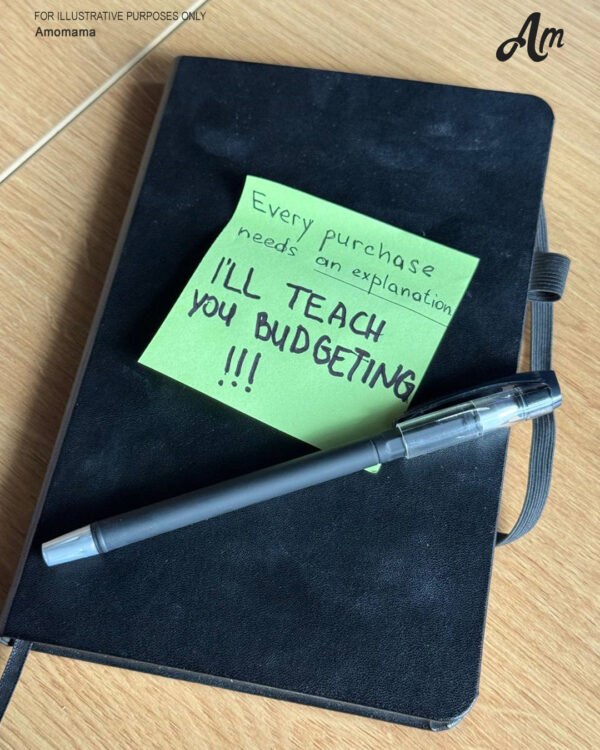 FOR ILLUSTRATIVE PURPOSES ONLY
Amomama
Am
Every purchase
needs an explanation
I'LL TEACH
you BUDGETING
!!!